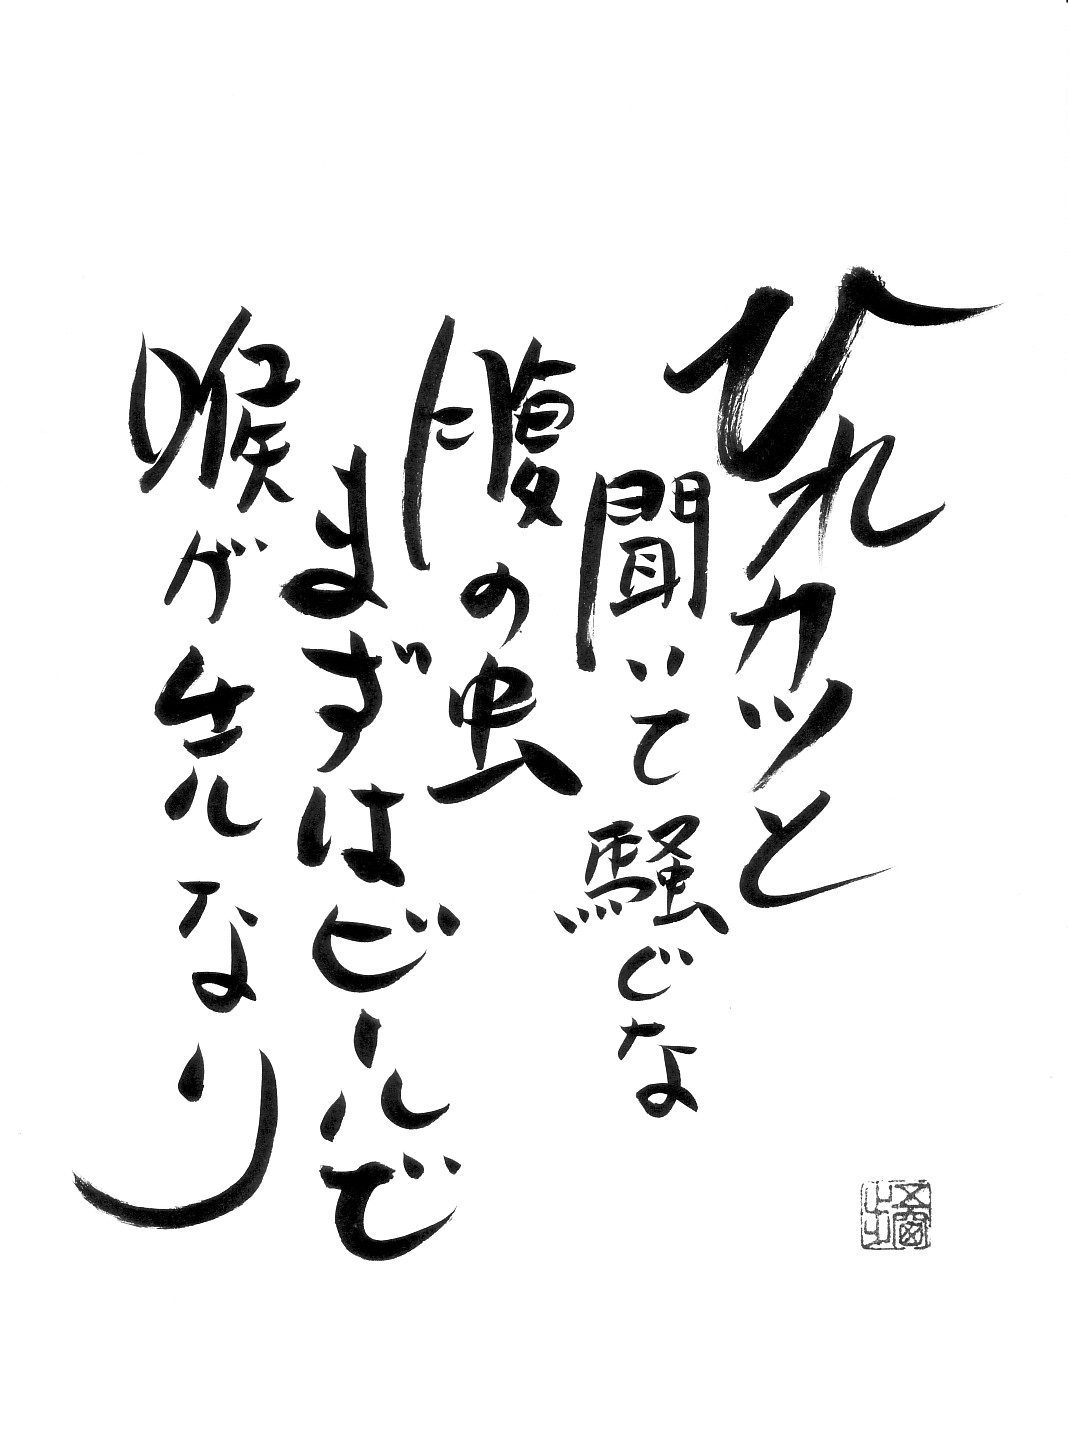 ひれカツと
聞いて騒ぐな
腹の虫
まずはビールで
喉が先なり